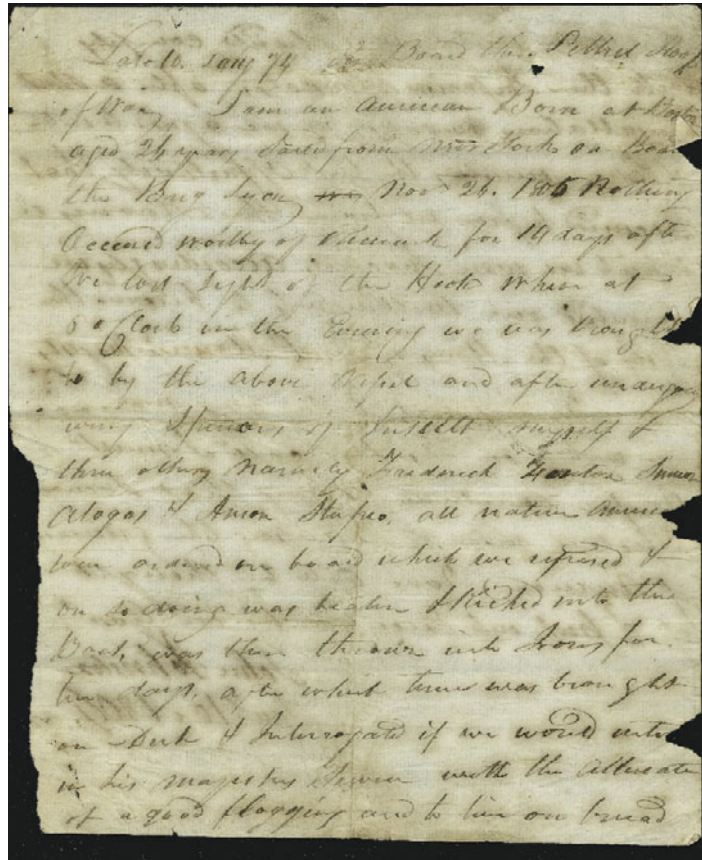 Board the Pettrel Sloop
of War, I am an American Born at Boston
aged 24 years Saild from New York on Boar
the Brig Nov 26. 1805 Nothing
Occured worthy of for 14 days afte
we lost Sight of the Hook when at
8 oClock in the Evening we was brought
to by the above and after undergo
of Insult myself &
three others namely Frederick
& Anson all native Americ
were ordered on board which we refused &
on so doing was beaten & kicked into the
Boat, was then thrown into Irons for
ten days, after which time was brought
on Deck & Interrogated if we would enter
in his majestys Service with the
of a good flogging and to live on bread